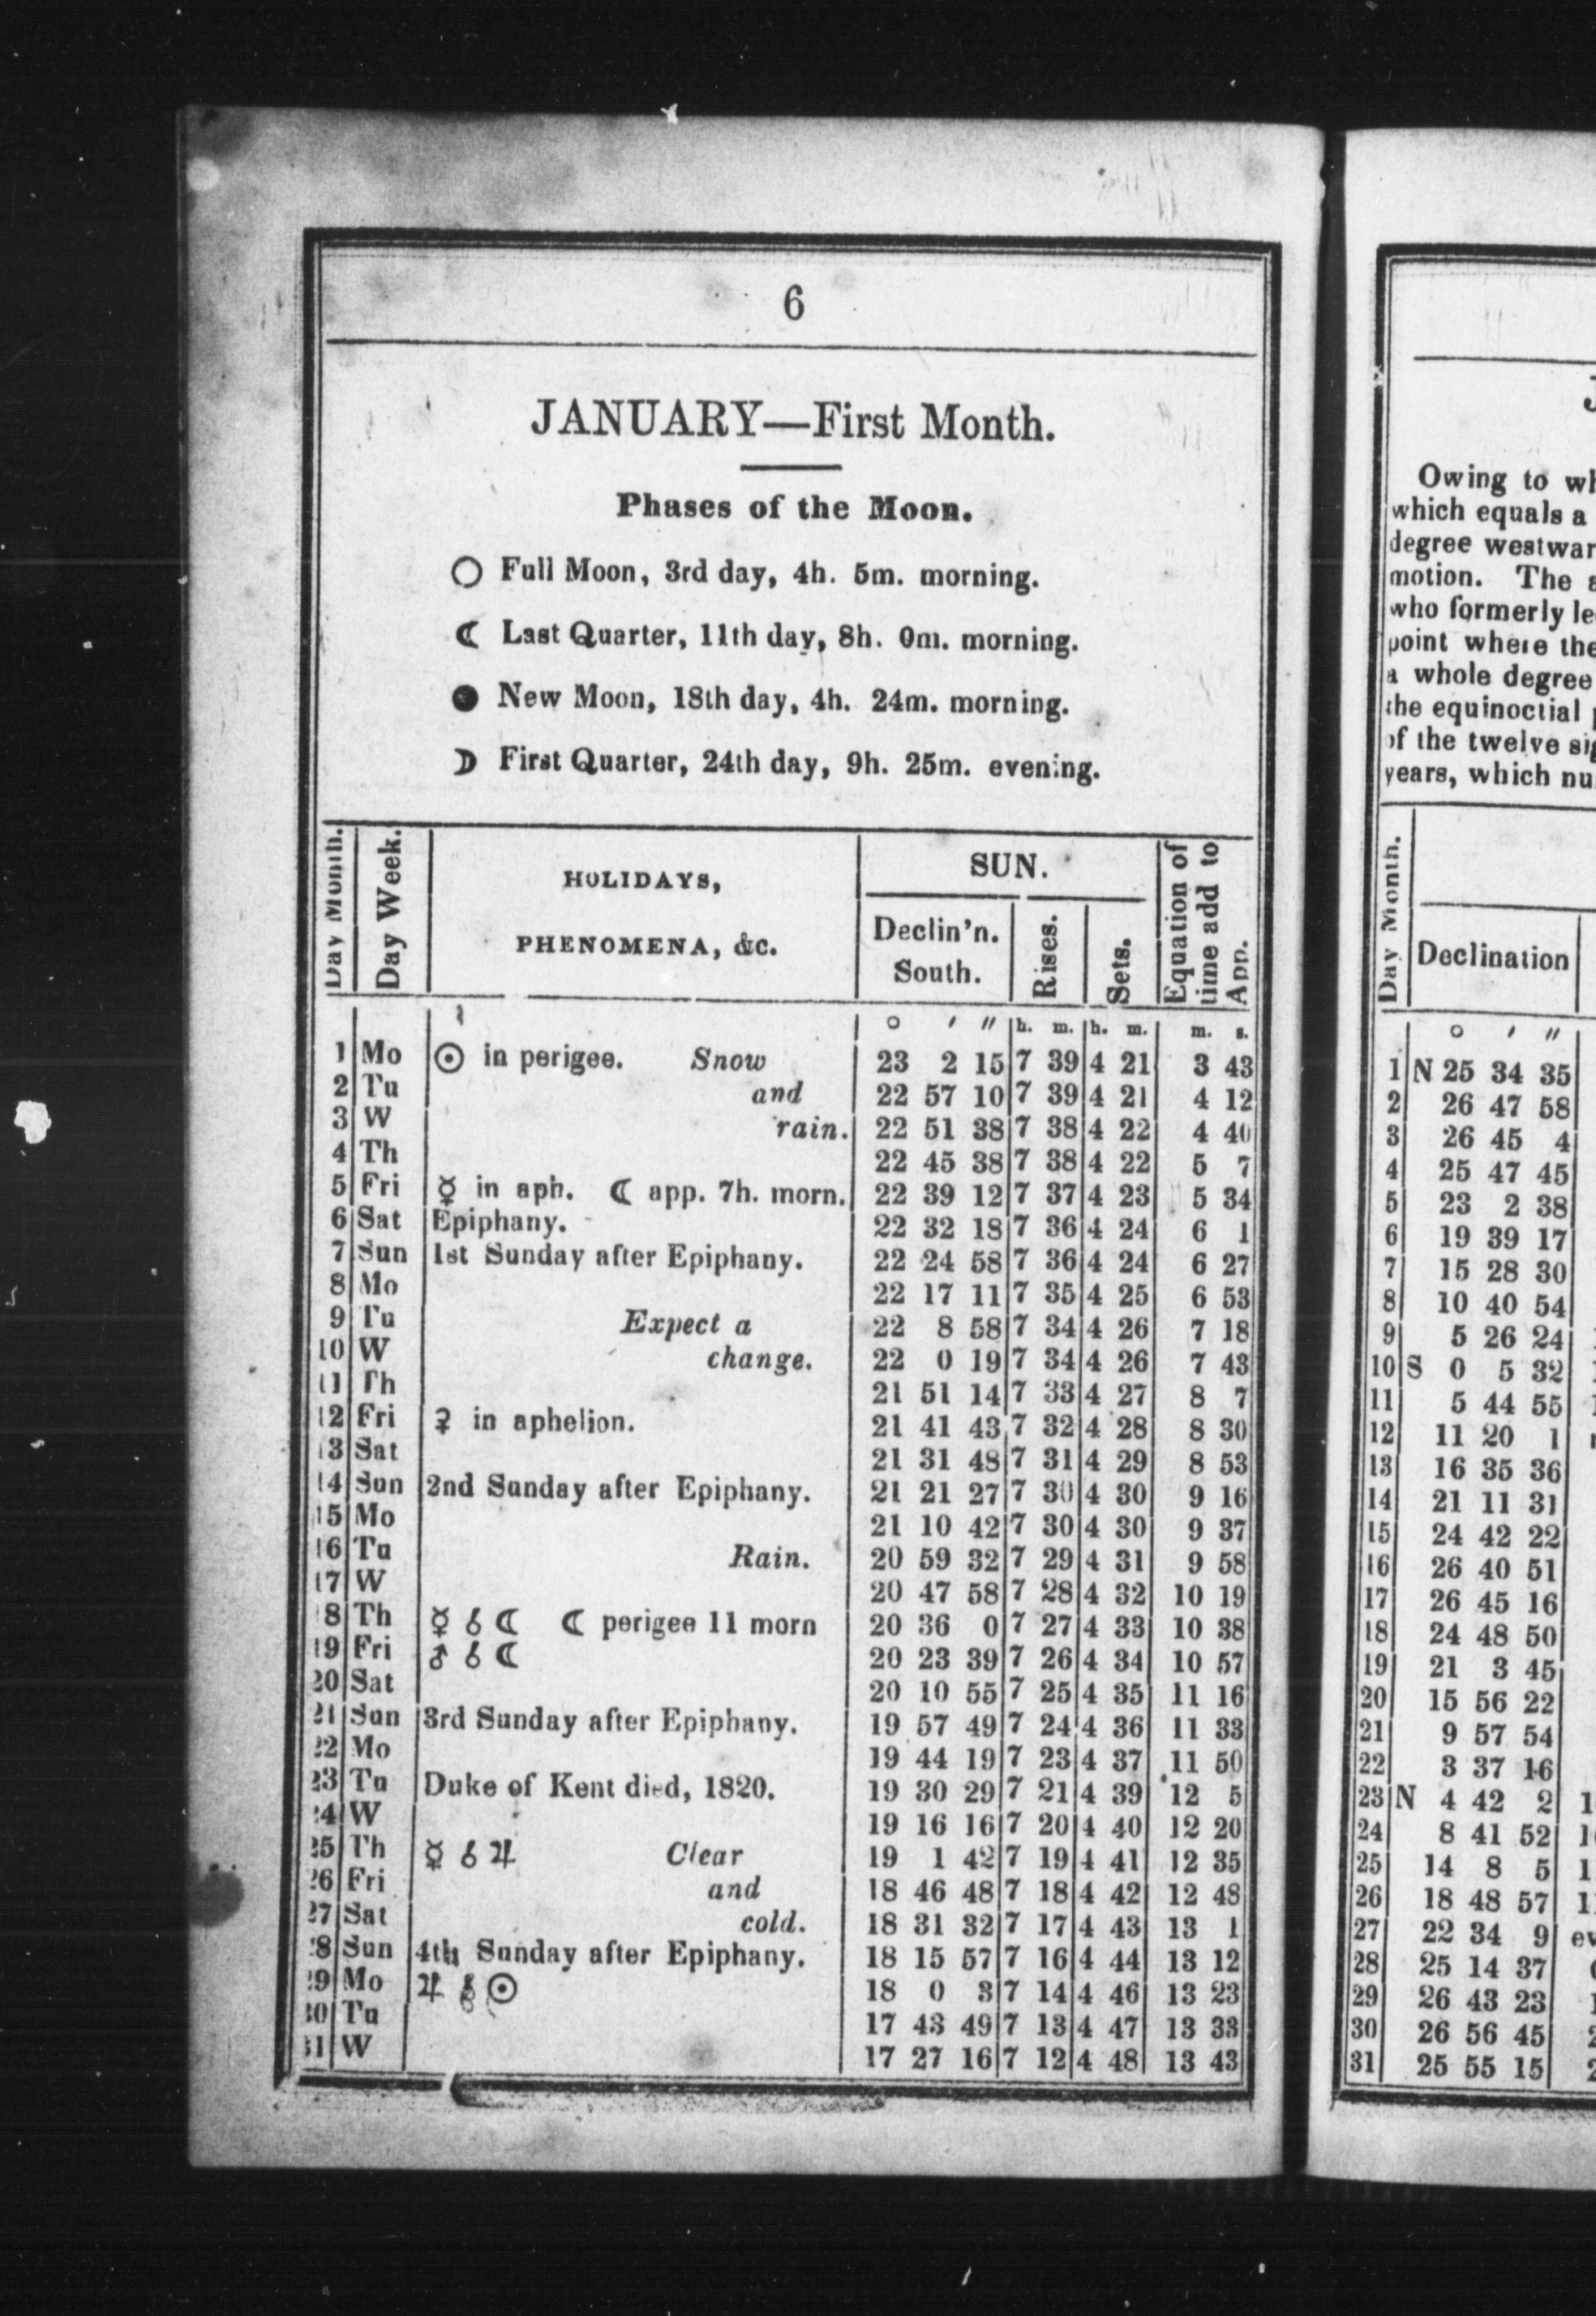 6
JANUARY—First Month.
Phases of the Moon.
○ Full Moon, 3rd day, 4h. 5m. morning.
☾ Last Quarter, 11th day, 8h. 0m. morning.
● New Moon, 18th day, 4h. 24m. morning.
☽ First Quarter, 24th day, 9h. 25m. evening.
Day Month. Day Week. HOLIDAYS, PHENOMENA, &c. SUN. Declin'n. South. Rises. Sets. Equation of time add to App.
○ ′ ″ h. m. h. m. m. s.
1 Mo ☉ in perigee. Snow 23 2 15 7 39 4 21 3 43
2 Tu and 22 57 10 7 39 4 21 4 12
3 W rain. 22 51 38 7 38 4 22 4 40
4 Th 22 45 38 7 38 4 22 5 7
5 Fri ☿ in aph. ☾ app. 7h. morn. 22 39 12 7 37 4 23 5 34
6 Sat Epiphany. 22 32 18 7 36 4 24 6 1
7 Sun 1st Sunday after Epiphany. 22 24 58 7 36 4 24 6 27
8 Mo 22 17 11 7 35 4 25 6 53
9 Tu Expect a 22 8 58 7 34 4 26 7 18
10 W change. 22 0 19 7 34 4 26 7 43
11 Th 21 51 14 7 33 4 27 8 7
12 Fri ♀ in aphelion. 21 41 43 7 32 4 28 8 30
13 Sat 21 31 48 7 31 4 29 8 53
14 Sun 2nd Sunday after Epiphany. 21 21 27 7 30 4 30 9 16
15 Mo 21 10 42 7 30 4 30 9 37
16 Tu Rain. 20 59 32 7 29 4 31 9 58
17 W 20 47 58 7 28 4 32 10 19
18 Th ☿ ☌ ☾ ☾ perigee 11 morn 20 36 0 7 27 4 33 10 38
19 Fri ♂ ☌ ☾ 20 23 39 7 26 4 34 10 57
20 Sat 20 10 55 7 25 4 35 11 16
21 Sun 3rd Sunday after Epiphany. 19 57 49 7 24 4 36 11 33
22 Mo 19 44 19 7 23 4 37 11 50
23 Tu Duke of Kent died, 1820. 19 30 29 7 21 4 39 12 5
24 W 19 16 16 7 20 4 40 12 20
25 Th ☿ ☌ ♃ Clear 19 1 42 7 19 4 41 12 35
26 Fri and 18 46 48 7 18 4 42 12 48
27 Sat cold. 18 31 32 7 17 4 43 13 1
28 Sun 4th Sunday after Epiphany. 18 15 57 7 16 4 44 13 12
29 Mo ♃ ☌ ☉ 18 0 3 7 14 4 46 13 23
30 Tu 17 43 49 7 13 4 47 13 33
31 W 17 27 16 7 12 4 48 13 43
J
Owing to wh
which equals a
degree westwar
motion. The a
who formerly le
point where the
a whole degree
the equinoctial
of the twelve sig
years, which nu
Day Month. Declination
○ ′ ″
1 N 25 34 35
2 26 47 58
3 26 45 4
4 25 47 45
5 23 2 38
6 19 39 17
7 15 28 30
8 10 40 54
9 5 26 24
10 S 0 5 32
11 5 44 55
12 11 20 1
13 16 35 36
14 21 11 31
15 24 42 22
16 26 40 51
17 26 45 16
18 24 48 50
19 21 3 45
20 15 56 22
21 9 57 54
22 3 37 16
23 N 4 42 2 1
24 8 41 52
25 14 8 5 1
26 18 48 57 1
27 22 34 9 ev
28 25 14 37
29 26 43 23
30 26 56 45 2
31 25 55 15 2